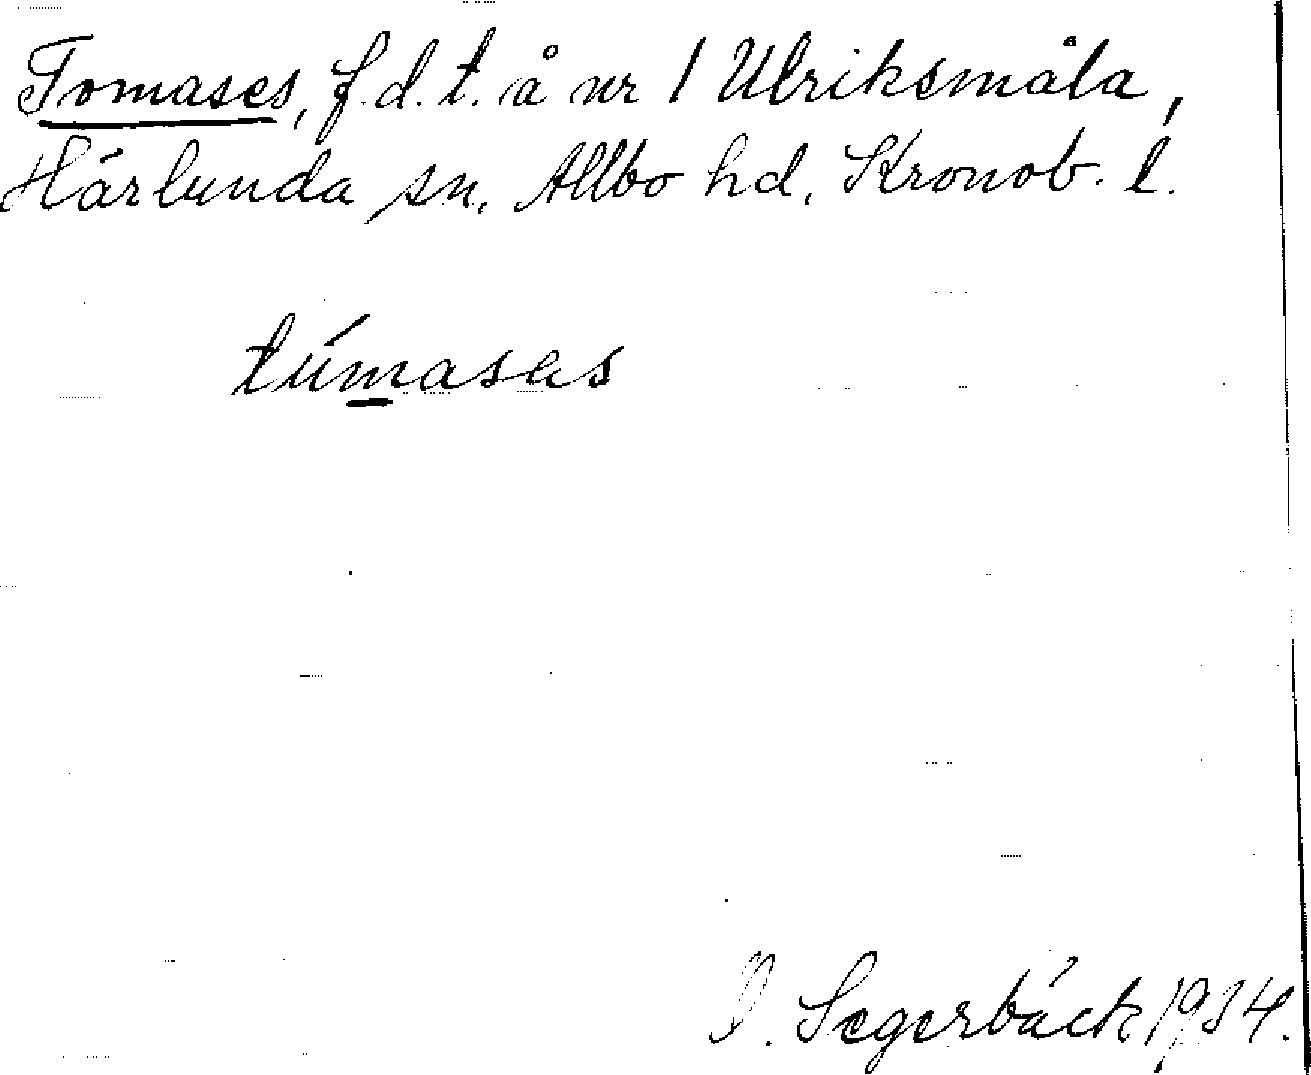 Tomases, f.d.t. å nr 1 Ulriksmåla,
Härlunda sn, Allbo hd, Kronob. l.
túmasas
Segerbäck 1934.